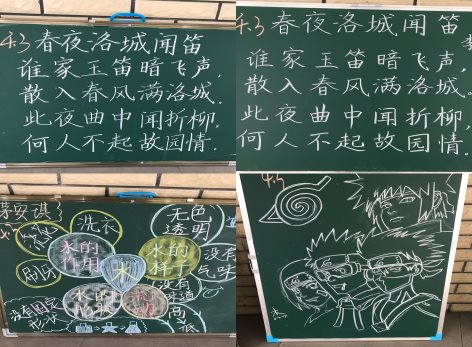 4.3 春夜洛城闻笛
谁家玉笛暗飞声,
散入春风满洛城.
此夜曲中闻折柳,
何人不起故园情.
4.3 春夜洛城闻笛
谁家玉笛暗飞声,
散入春风满洛城.
此夜曲中闻折柳,
何人不起故园情.
洗衣
无色
透明
水的
作用
水
水的
样子
没有
气味
刷牙
水的
没有
味道
高
低
没有固定
形状
4.5